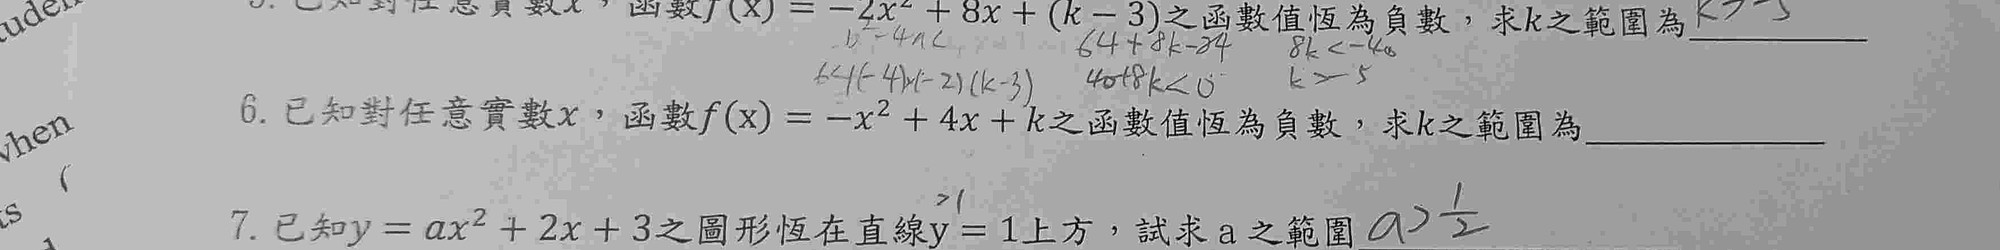 5. 已知對任意實數x，函數f(x) = −2x² + 8x + (k − 3)之函數值恆為負數，求k之範圍為 k>-5
b²-4ac 64+8k-24 8k<-40
64(-4)×(-2)(k-3) 40+8k<0 k>-5
6. 已知對任意實數x，函數f(x) = −x² + 4x + k之函數值恆為負數，求k之範圍為
when
>1
7. 已知y = ax² + 2x + 3之圖形恆在直線y = 1上方，試求 a 之範圍 a>1/2